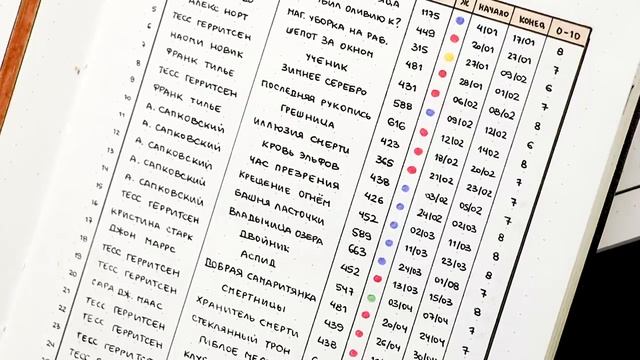 5
6
7
8
9
10
11
12
13
14
15
16
17
18
19
20
21
22
23
24
АЛЕКС НОРТ
ТЕСС ГЕРРИТСЕН
НАОМИ НОВИК
ФРАНК ТИЛЬЕ
ТЕСС ГЕРРИТСЕН
ФРАНК ТИЛЬЕ
А. САПКОВСКИЙ
А. САПКОВСКИЙ
А. САПКОВСКИЙ
А. САПКОВСКИЙ
А. САПКОВСКИЙ
ТЕСС ГЕРРИТСЕН
КРИСТИНА СТАРК
ДЖОН МАРРС
ТЕСС ГЕРРИТСЕН
ТЕСС ГЕРРИТСЕН
САРА ДЖ. МААС
ТЕСС ГЕРРИТСЕН
ТЕСС ГЕРРИТСЕН
ОЛИВИЮ К?
МАГ. УБОРКА НА РАБ.
ШЕПОТ ЗА ОКНОМ
УЧЕНИК
ЗИМНЕЕ СЕРЕБРО
ПОСЛЕДНЯЯ РУКОПИСЬ
ГРЕШНИЦА
ИЛЛЮЗИЯ СМЕРТИ
КРОВЬ ЭЛЬФОВ
ЧАС ПРЕЗРЕНИЯ
КРЕЩЕНИЕ ОГНЁМ
БАШНЯ ЛАСТОЧКИ
ВЛАДЫЧИЦА ОЗЕРА
ДВОЙНИК
АСПИД
ДОБРАЯ САМАРИТЯНКА
СМЕРТНИЦЫ
ХРАНИТЕЛЬ СМЕРТИ
СТЕКЛЯННЫЙ ТРОН
1175
449
315
481
431
588
616
423
365
438
426
452
589
663
452
547
481
439
438
Ж
НАЧАЛО
4/01
20/01
27/01
28/01
06/02
09/02
12/02
18/02
21/02
03/02
24/02
02/03
11/03
24/03
13/03
03/04
20/04
26/04
КОНЕЦ
17/01
27/01
09/02
01/02
08/02
12/02
14/02
20/02
23/02
05/02
02/03
11/03
23/03
01/08
15/03
07/04
24/04
0-10
8
7
6
7
8
6
8
7
7
7
7
8
8
7
8
7
7
7